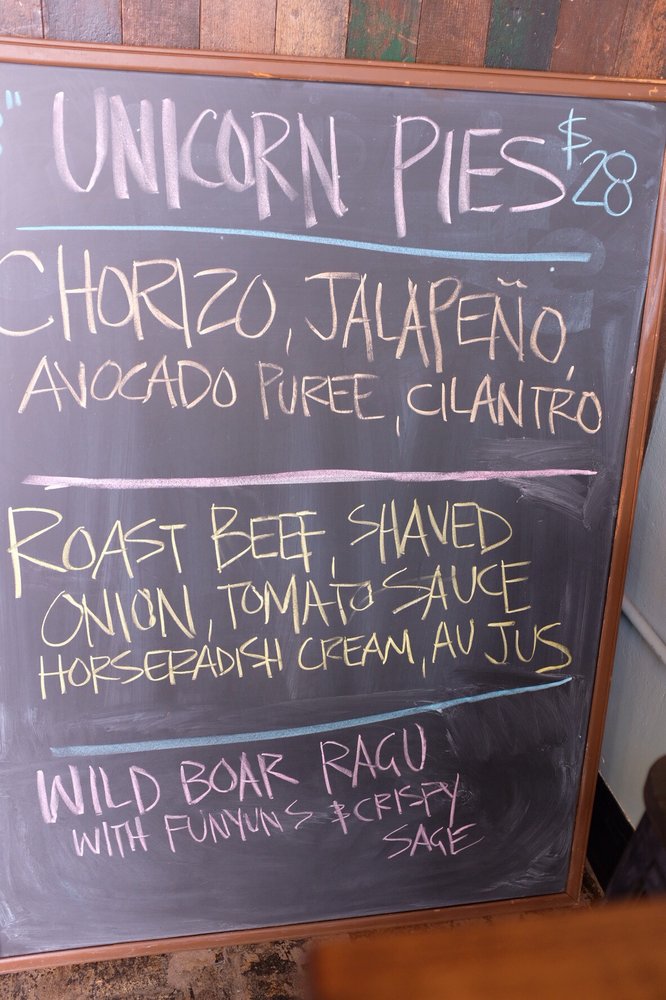 UNICORN PIES $28
CHORIZO, JALAPEÑO,
AVOCADO PUREE, CILANTRO
ROAST BEEF, SHAVED
ONION, TOMATO SAUCE
HORSERADISH CREAM, AU JUS
WILD BOAR RAGU
WITH FUNYUNS & CRISPY
SAGE